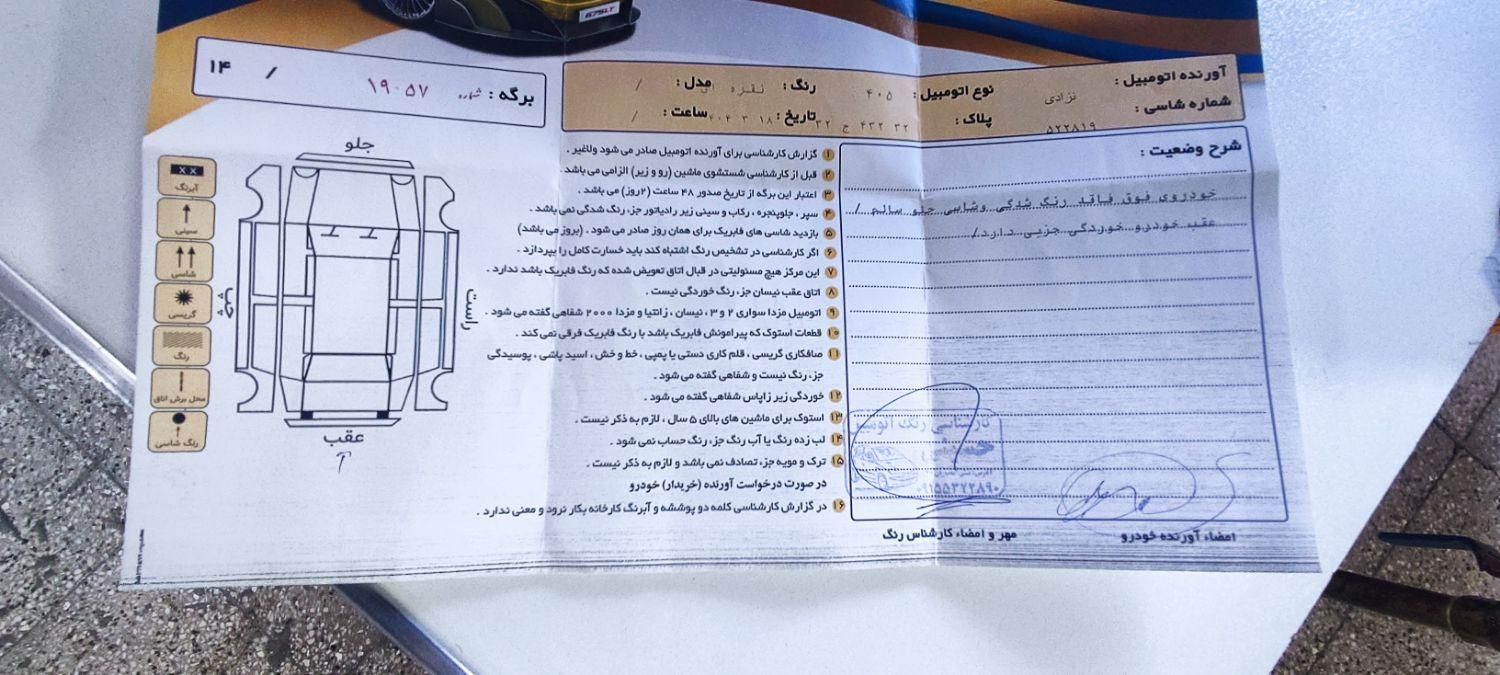 675LT
آورنده اتومبیل : نژادی نوع اتومبیل : ۴۰۵ رنگ : نقره ای مدل : /
شماره شاسی : ۵۲۲۸۱۹ پلاک : ۳۲ ۴۳۲ ج ۳۲ تاریخ : ۱۸ ۳ ۴۰۴ ساعت : /
برگه : شماره ۱۹۰۵۷ / ۱۴
شرح وضعیت :
خودروی فوق فاقد رنگ شدگی وشاسی جلو سالم /
عقب خودرو خوردگی جزیی دارد/
۱ گزارش کارشناسی برای آورنده اتومبیل صادر می شود ولاغیر .
۲ قبل از کارشناسی شستشوی ماشین (رو و زیر) الزامی می باشد .
۳ اعتبار این برگه از تاریخ صدور ۴۸ ساعت (۲روز) می باشد .
۴ سپر ، جلوپنجره ، رکاب و سینی زیر رادیاتور جزء رنگ شدگی نمی باشد .
۵ بازدید شاسی های فابریک برای همان روز صادر می شود . (بروز می باشد)
۶ اگر کارشناسی در تشخیص رنگ اشتباه کند باید خسارت کامل را بپردازد .
۷ این مرکز هیچ مسئولیتی در قبال اتاق تعویض شده که رنگ فابریک باشد ندارد .
۸ اتاق عقب نیسان جزء رنگ خوردگی نیست .
۹ اتومبیل مزدا سواری ۲ و ۳ ، نیسان ، زانتیا و مزدا ۲۰۰۰ شفاهی گفته می شود .
۱۰ قطعات استوک که پیرامونش فابریک باشد با رنگ فابریک فرقی نمی کند .
۱۱ صافکاری گریسی ، قلم کاری دستی یا پمپی ، خط و خش ، اسید پاشی ، پوسیدگی
جزء رنگ نیست و شفاهی گفته می شود .
۱۲ خوردگی زیر زاپاس شفاهی گفته می شود .
۱۳ استوک برای ماشین های بالای ۵ سال ، لازم به ذکر نیست .
۱۴ لب زده رنگ یا آب رنگ جزء رنگ حساب نمی شود .
۱۵ ترک و مویه جزء تصادف نمی باشد و لازم به ذکر نیست .
در صورت درخواست آورنده (خریدار) خودرو
۱۶ در گزارش کارشناسی کلمه دو پوششه و آبرنگ کارخانه بکار نرود و معنی ندارد .
جلو
راست
چپ
عقب
XX
آبرنگ
سینی
شاسی
گریسی
رنگ
محل برش اتاق
رنگ شاسی
کارشناسی رنگ اتومبیل
۰۹۱۵۵۳۷۲۸۹۰
امضاء آورنده خودرو
مهر و امضاء کارشناس رنگ